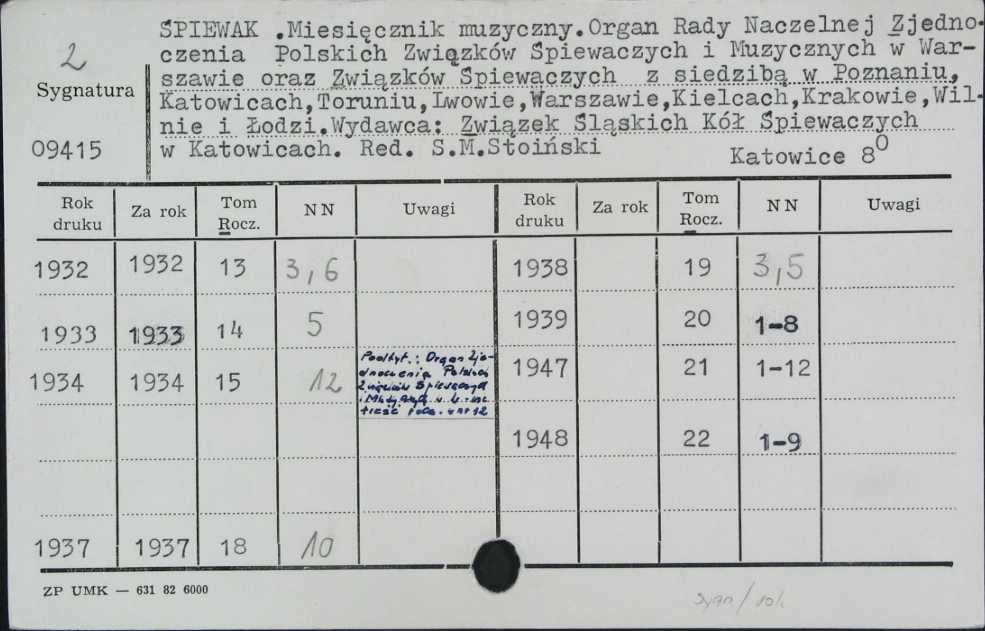 2
SPIEWAK .Miesięcznik muzyczny.Organ Rady Naczelnej Zjedno-
czenia Polskich Związków Spiewaczych i Muzycznych w War-
szawie oraz Związków Spiewaczych z siedzibą w Poznaniu,
Katowicach,Toruniu,Lwowie,Warszawie,Kielcach,Krakowie,Wil-
nie i Łodzi.Wydawca: Związek Sląskich Kół Spiewaczych
w Katowicach. Red. S.M.Stoiński
Katowice 8⁰
Sygnatura
09415
Rok druku Za rok Tom Rocz. NN Uwagi Rok druku Za rok Tom Rocz. NN Uwagi
1932 1932 13 3,6 1938 19 3,5
1933 1933 14 5 1939 20 1-8
1934 1934 15 12 1947 21 1-12
Podtyt.: Organ Zje-
dnoczenia Polskich
Związków Spiewaczych
1948 22 1-9
1937 1937 18 10
ZP UMK — 631 82 6000